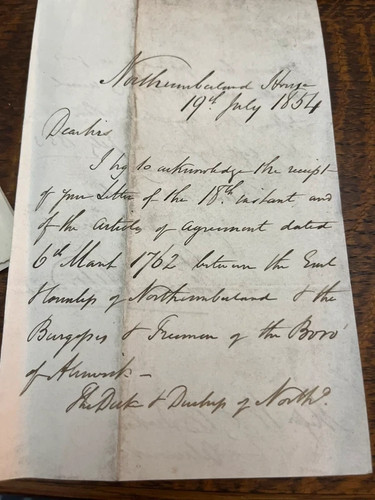 Northumberland House
19th July 1854
Dear Sirs,
I beg to acknowledge the receipt
of your Letter of the 18th instant and
of the Articles of Agreement dated
6th March 1762 between the Earl
& Countess of Northumberland & the
Burgesses & Freemen of the Boro'
of Alnwick –
The Duke & Duchess of North'd.